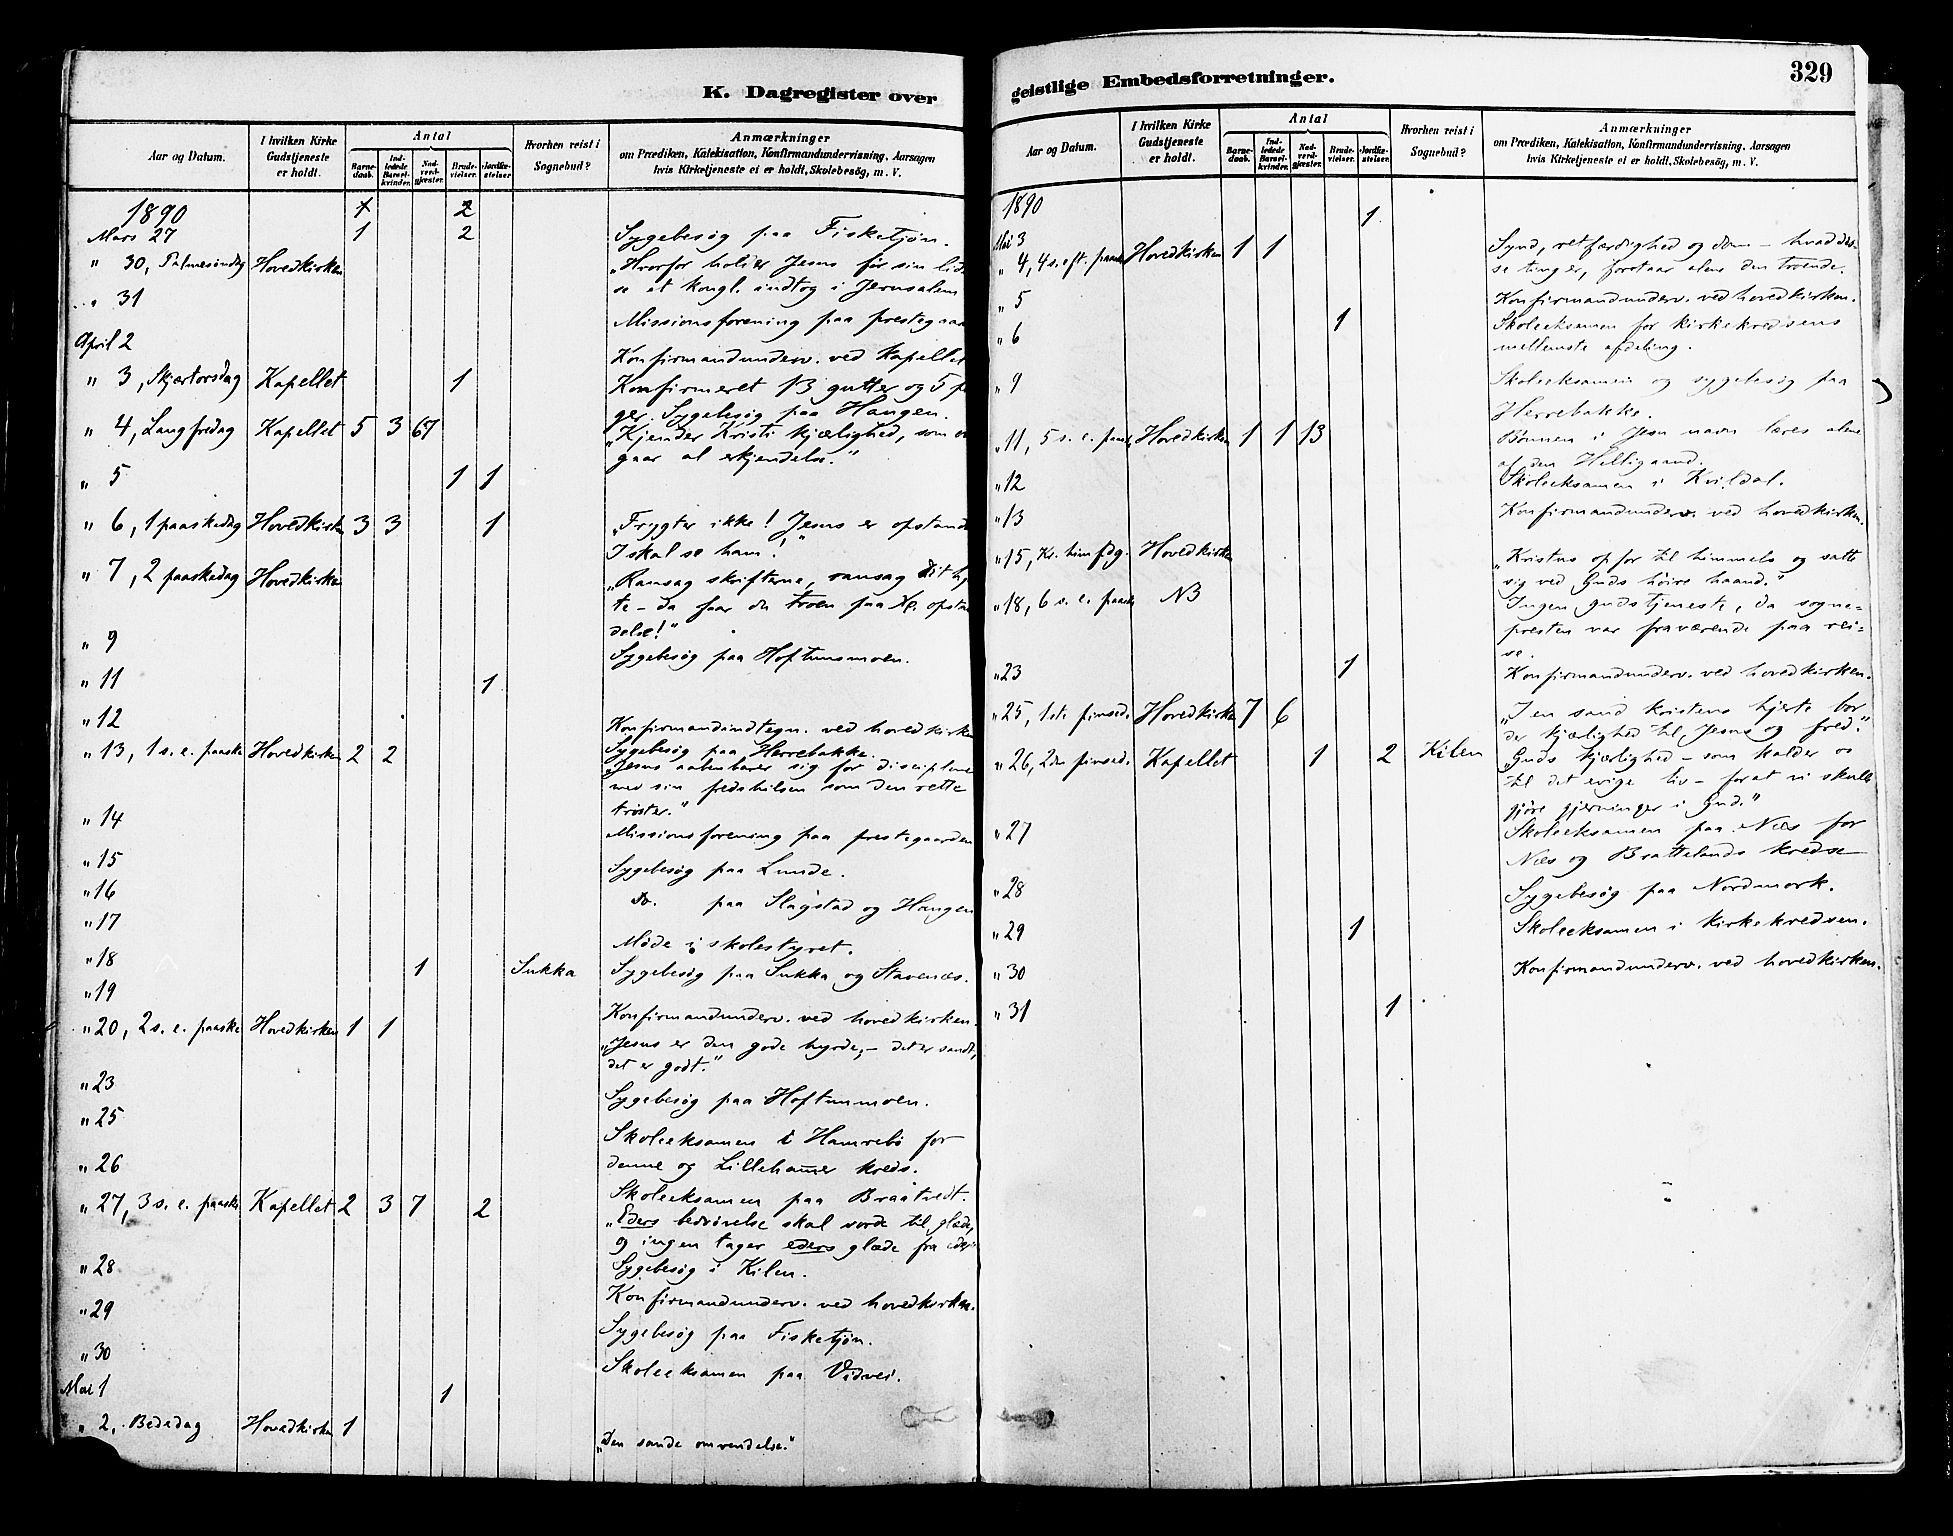 K. Dagregister over
Aar og Datum.
I hvilken Kirke Gudstjeneste er holdt.
Antal
Barnedaab.
Indledede Barselkvinder.
Nadverdgjæster.
Brudevielser.
Jordfæstelser.
Hvorhen reist i Sognebud?
Anmærkninger
om Prædiken, Katekisation, Konfirmandundervisning, Aarsagen
hvis Kirketjeneste ei er holdt, Skolebesøg, m. V.
1890 1 2
Mars 27 1 2 Sygebesøg paa Fisketjøn.
" 30, Palmesøndag Hovedkirken „Hvorfor holder Jesus før sin lidel-
se et kongl. indtog i Jerusalem
" 31 Missionsforening paa prestegaar
April 2 Konfirmandunderv. ved kapellet
" 3, Skjærtorsdag Kapellet 1 Konfirmeret 13 gutter og 5 pi
ger. Sygebesøg paa Haugen.
" 4, Langfredag Kapellet 5 3 67 „Kjender Kristi kjærlighed, som ov
gaar al erkjendelse."
" 5 1 1
" 6, 1 paaskedag Hovedkirken 3 3 1 „Frygter ikke! Jesus er opstand
I skal se ham!"
" 7, 2 paaskedag Hovedkirken „Ransag skrifterne, ransag dit hj
te - da faar du troen paa Xp. opstan
delse!"
" 9 Sygebesøg paa Hoftunsmoen.
" 11 1
" 12 Konfirmandindtegn. ved hovedkirken
Sygebesøg paa Herrebakke.
" 13, 1 s. e. paaske Hovedkirken 2 2 „Jesus aabenbarer sig for disciplene
med sin fredshilsen som den rette
trøster."
" 14 Missionsforening paa prestegaarden
" 15 Sygebesøg paa Lunde.
" 16 do. paa Slagstad og Haugen
" 17 Møde i skolestyret.
" 18 1 Sukka Sygebesøg paa Sukka og Stavenæs.
" 19 Konfirmandunderv. ved hovedkirken.
" 20, 2 s. e. paaske Hovedkirken 1 1 „Jesus er den gode hyrde, - det er sandt,
det er godt."
" 23 Sygebesøg paa Hoftunmoen.
" 25 Skoleeksamen i Hamrebø for
denne og Lillehammer kreds.
" 26 Skoleeksamen paa Braatvedt.
" 27, 3 s. e. paaske Kapellet 2 3 7 2 „Eders bedrøvelse skal vorde til glæde,
og ingen tager eders glæde fra eder"
" 28 Sygebesøg i Kilen.
" 29 Konfirmandunderv. ved hovedkirken.
" 30 Sygebesøg paa Fisketjøn.
Mai 1 1 Skoleeksamen paa Vidvei.
" 2, Bededag Hovedkirken 1 „Den sande omvendelse."
geistlige Embedsforretninger.
329
Aar og Datum.
I hvilken Kirke Gudstjeneste er holdt.
Antal
Barnedaab.
Indledede Barselkvinder.
Nadverdgjæster.
Brudevielser.
Jordfæstelser.
Hvorhen reist i Sognebud?
Anmærkninger
om Prædiken, Katekisation, Konfirmandundervisning, Aarsagen
hvis Kirketjeneste ei er holdt, Skolebesøg, m. V.
1890
Mai 3 1
" 4, 4 s. eft. paaske Hovedkirken 1 1 Synd, retfærdighed og dom - hvad dis-
se ting er, forstaar alene den troende.
" 5 Konfirmandunderv. ved hovedkirken.
" 6 1 Skoleeksamen for kirkekredsens
mellemste afdeling.
" 9 Skoleeksamen og sygebesøg paa
Herrebakke.
" 11, 5 s. e. paaske Hovedkirken 1 1 13 Bønnen i Jesu navn læres alene
af den Helligaand.
" 12 Skoleeksamen i Kvildal.
" 13 Konfirmandunderv. ved hovedkirken.
" 15, Kr. himfdg. Hovedkirken „Kristus opfor til himmels og satte
sig ved Guds høire haand."
" 18, 6 s. e. paaske NB Ingen gudstjeneste, da sogne-
presten var fraværende paa rei-
se.
" 23 1 Konfirmandunderv. ved hovedkirken.
" 25, 1ste pinsed. Hovedkirken 7 6 „I en sand kristens hjerte bor
der kjærlighed til Jesus og fred."
" 26, 2den pinsed. Kapellet 1 2 Kilen „Guds kjærlighed - som kalder os
til det evige liv - forat vi skulle
gjøre gjerninger i Gud."
" 27 Skoleeksamen paa Næs for
Næs og Brattelands kredse
" 28 Sygebesøg paa Nordmork.
" 29 1 Skoleeksamen i kirkekredsen.
" 30 Konfirmandunderv. ved hovedkirken.
" 31 1